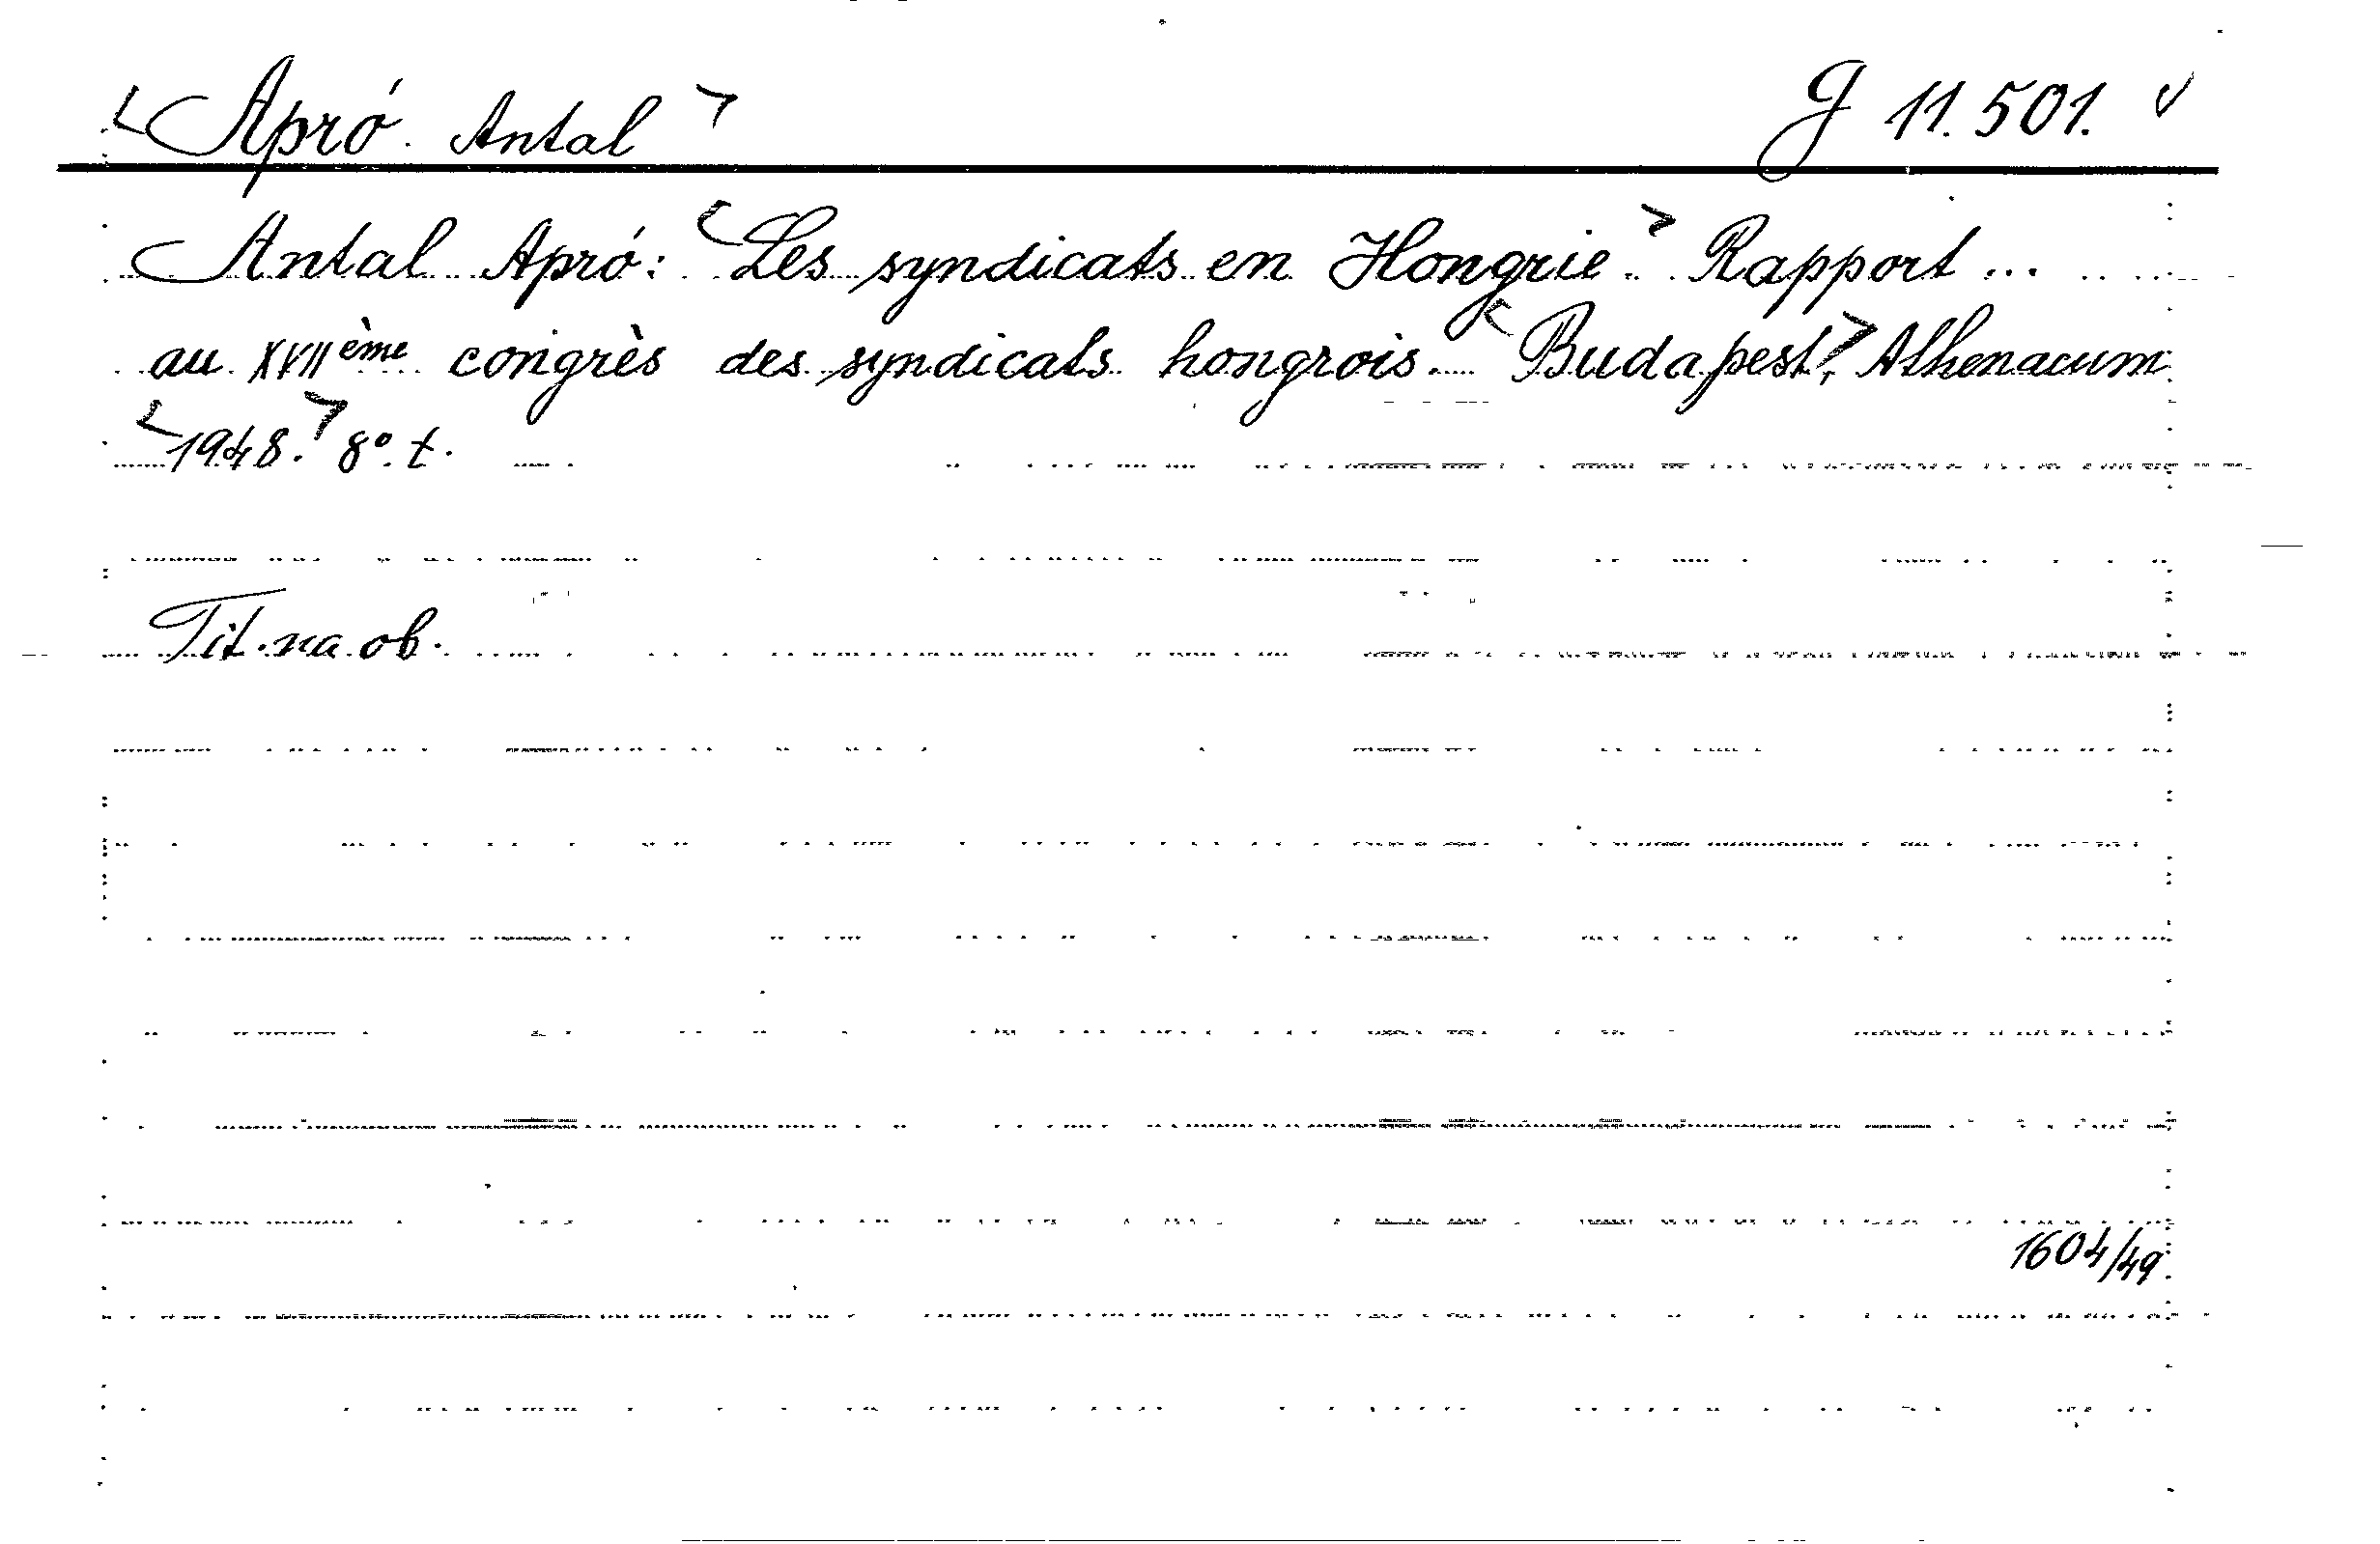 <Apró Antal> J 11.501. √
Antal Apró: <Les syndicats en Hongrie.> Rapport ...
au XVIIème congrès des syndicats hongrois. <Budapest,> Athenaeum
<1948.> 8°. t.
Tit. na ob.
1604/49